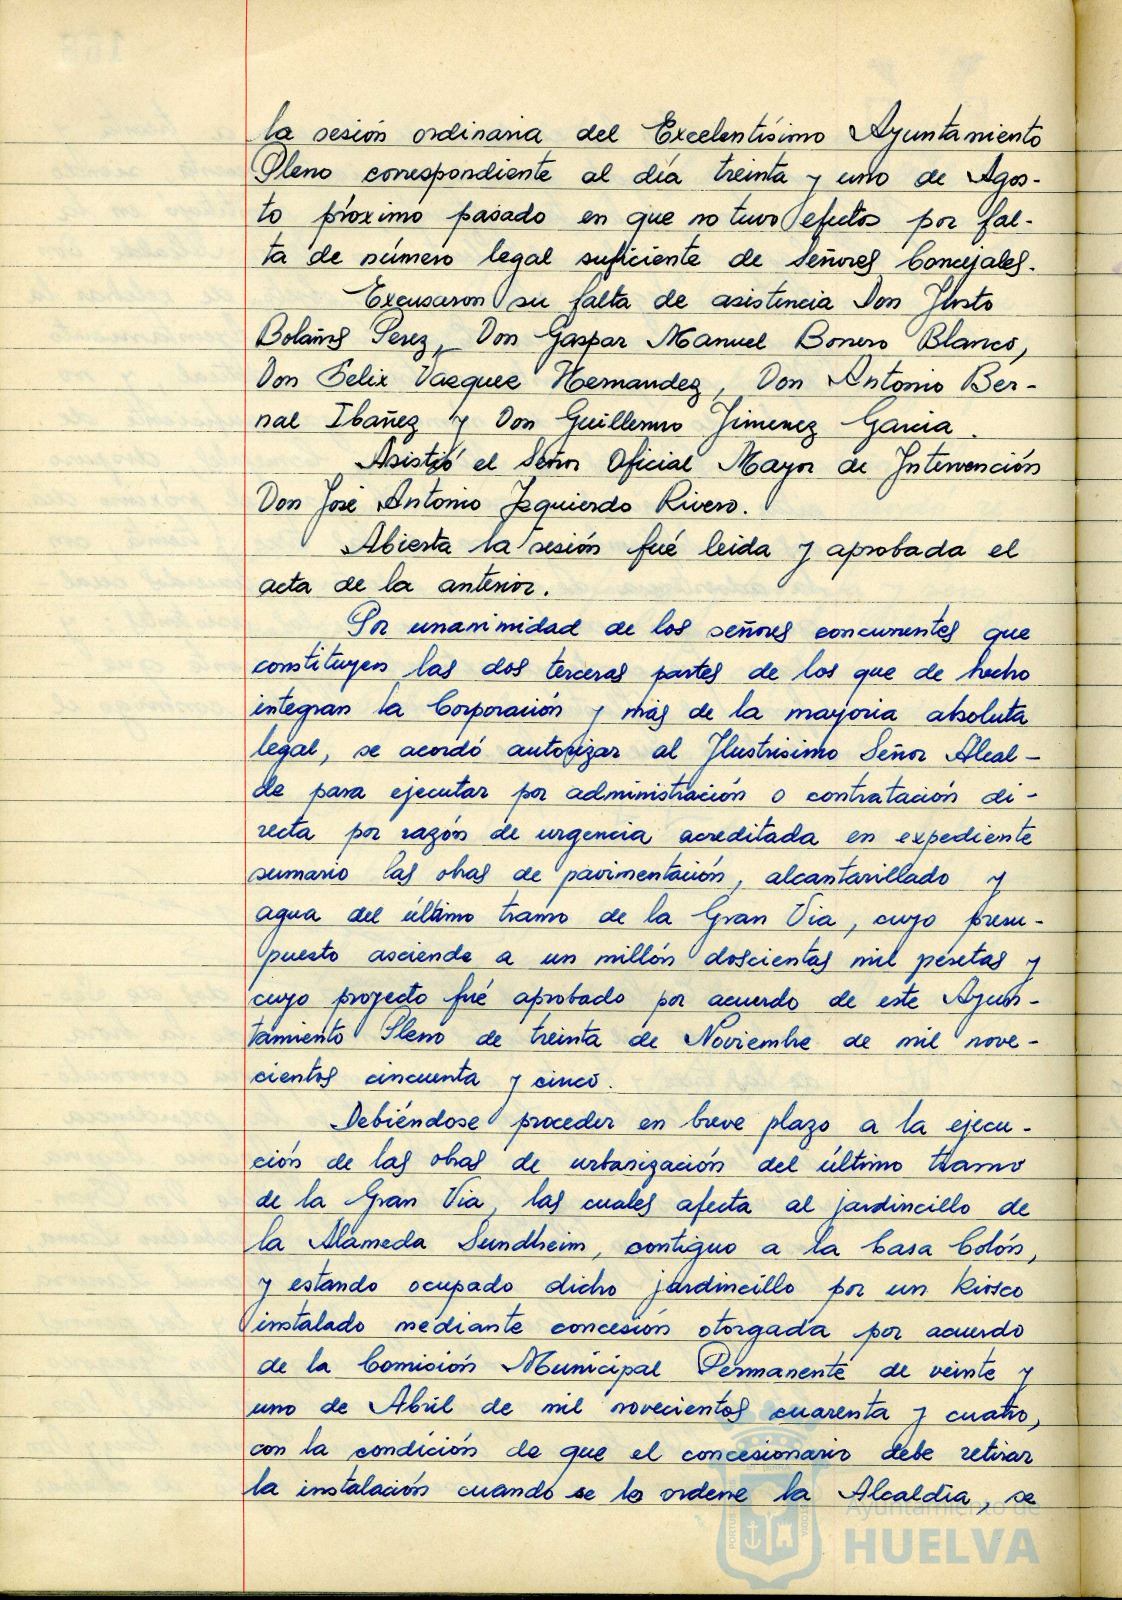 la sesión ordinaria del Excelentísimo Ayuntamiento
Pleno correspondiente al día treinta y uno de Agos-
to próximo pasado en que no tuvo efectos por fal-
ta de número legal suficiente de Señores Concejales.
Excusaron su falta de asistencia Don Justo
Bolaños Perez, Don Gaspar Manuel Bonero Blanco,
Don Felix Vazquez Hernandez, Don Antonio Ber-
nal Ibañez y Don Guillermo Jimenez Garcia.
Asistió el Señor Oficial Mayor de Intervención
Don José Antonio Izquierdo Rivero.
Abierta la sesión fué leida y aprobada el
acta de la anterior.
Por unanimidad de los señores concurrentes que
constituyen las dos terceras partes de los que de hecho
integran la Corporación y más de la mayoria absoluta
legal, se acordó autorizar al Ilustrisimo Señor Alcal-
de para ejecutar por administración o contratación di-
recta por razón de urgencia acreditada en expediente
sumario las obras de pavimentación, alcantarillado y
agua del último tramo de la Gran Via, cuyo presu-
puesto asciende a un millón doscientas mil pesetas y
cuyo proyecto fué aprobado por acuerdo de este Ayun-
tamiento Pleno de treinta de Noviembre de mil nove-
cientos cincuenta y cinco.
Debiéndose proceder en breve plazo a la ejecu-
ción de las obras de urbanización del último tramo
de la Gran Via, las cuales afecta al jardincillo de
la Alameda Sundheim, contiguo a la Casa Colón,
y estando ocupado dicho jardincillo por un kiosco
instalado mediante concesión otorgada por acuerdo
de la Comisión Municipal Permanente de veinte y
uno de Abril de mil novecientos cuarenta y cuatro,
con la condición de que el concesionario debe retirar
la instalación cuando se lo ordene la Alcaldía, se
Ayuntamiento de
HUELVA